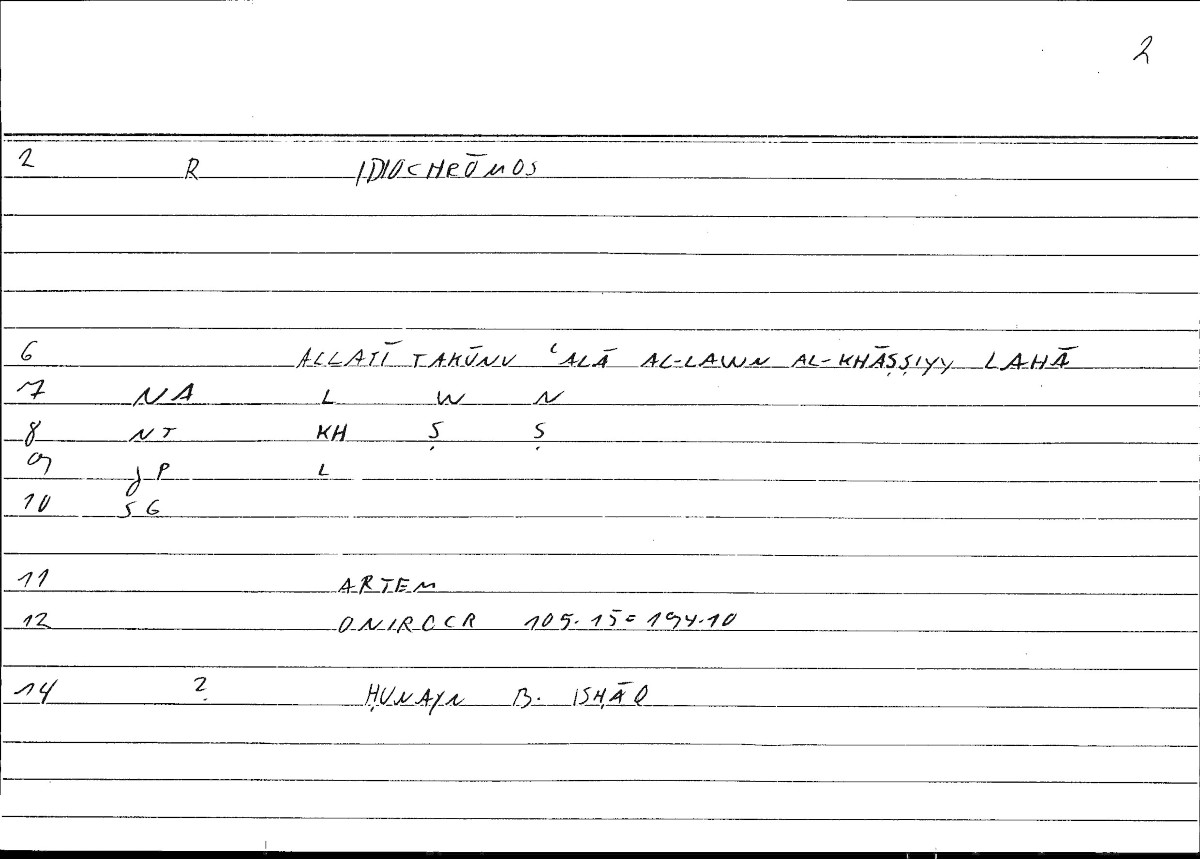 2
2 R IDIOCHRŌMOS
6 ALLATĪ TAKŪNU ʿALĀ AL-LAWN AL-KHĀṢṢIYY LAHĀ
7 NA L W N
8 NT KH Ṣ Ṣ
9 JP L
10 SG
11 ARTEM
12 ONIROCR 105.15=194.10
14 ? ḤUNAYN B. ISḤĀQ